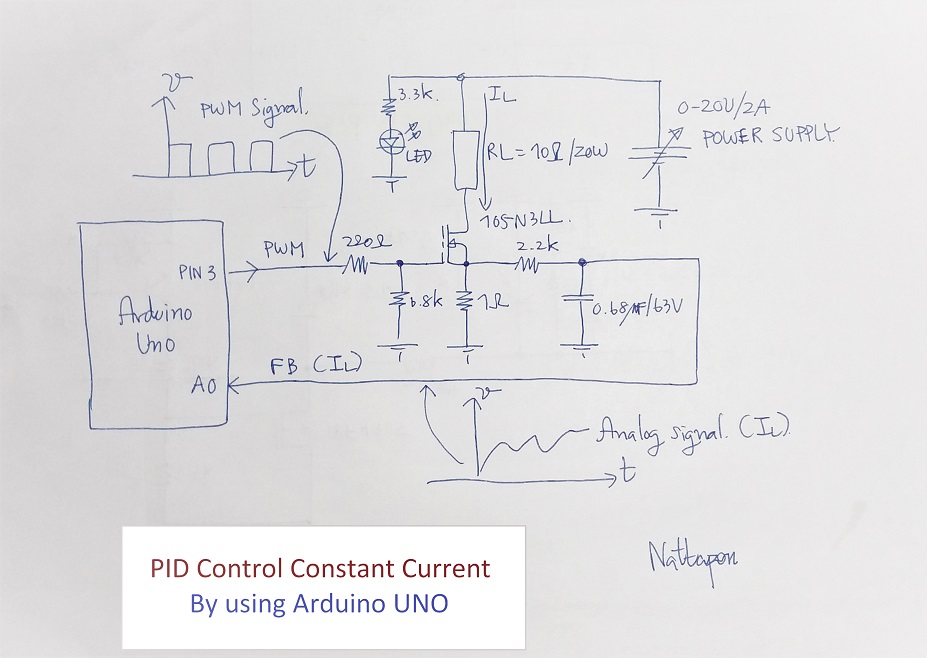 v
PWM Signal.
t
3.3k.
LED
IL
RL = 10Ω/20W
0-20V/2A
POWER SUPPLY.
105N3LL.
PWM
220Ω
2.2k
PIN 3
Arduino
Uno
6.8k
1Ω
0.68µF/63V
A0
FB (IL)
v
Analog signal. (IL).
t
Nattapon
PID Control Constant Current
By using Arduino UNO